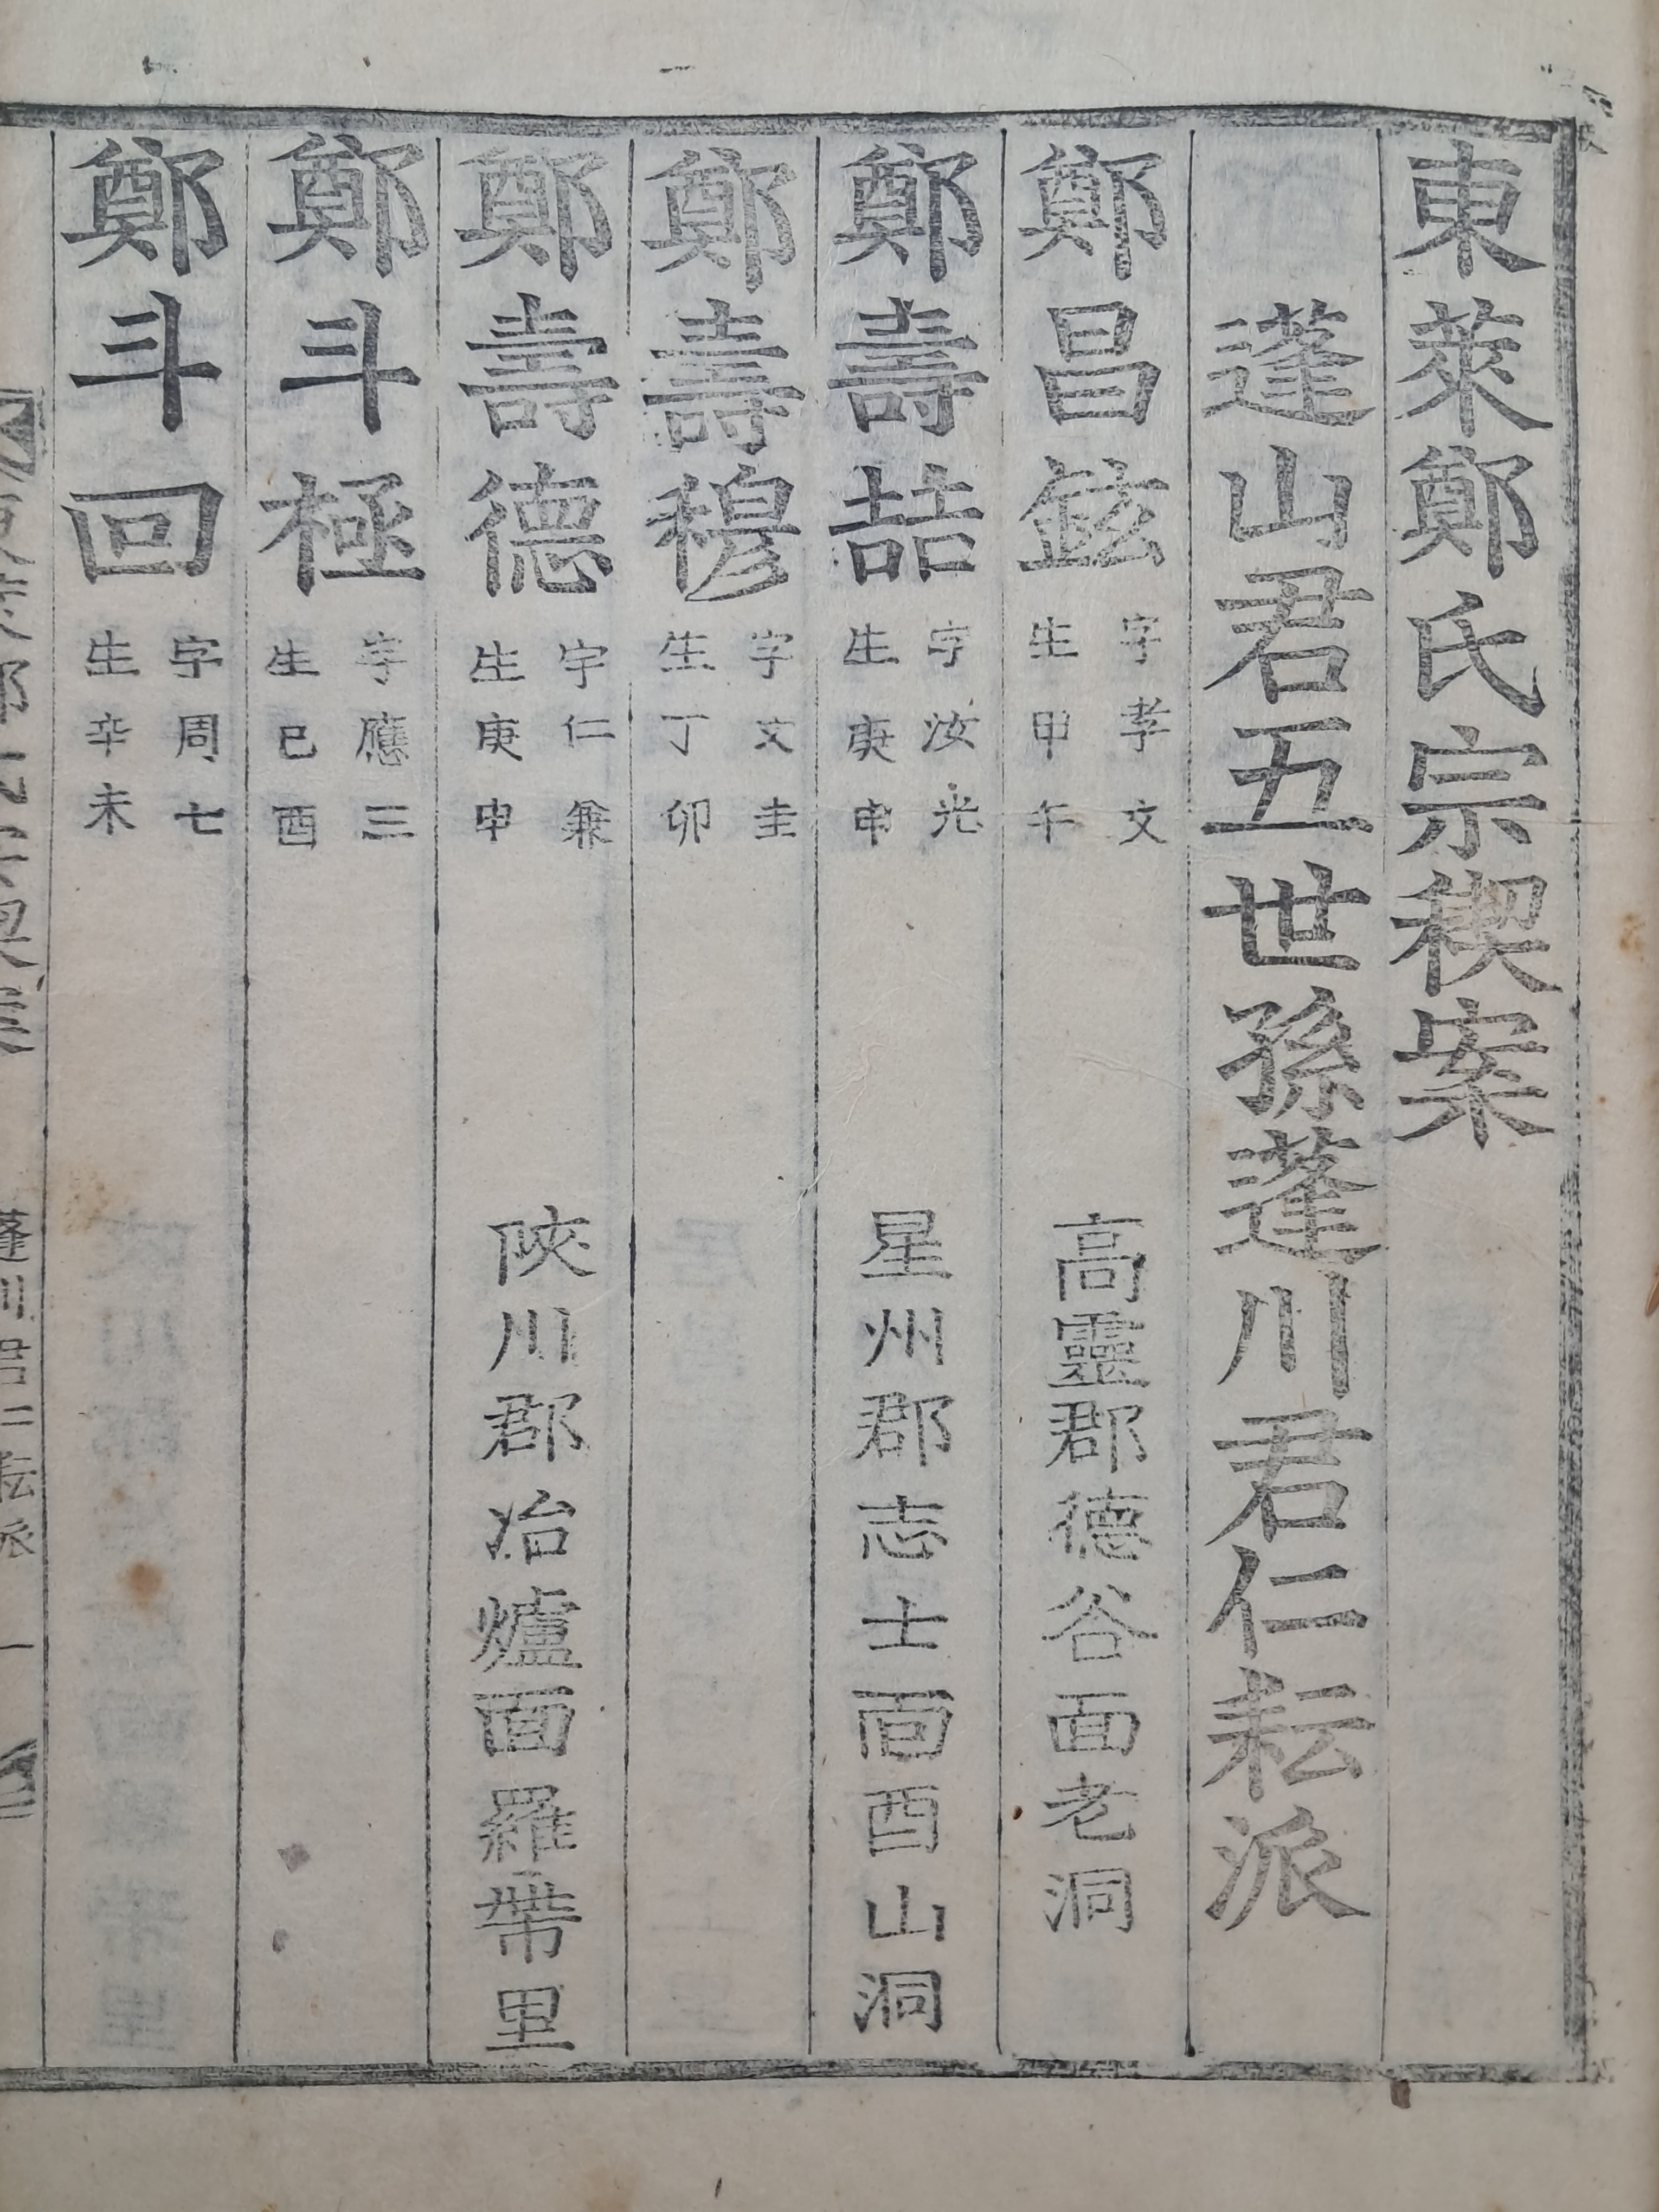 東萊鄭氏宗稧案
蓬山君五世孫蓬川君仁耘派
鄭昌鉉 字孝文 生甲午 高靈郡德谷面老洞
鄭壽喆 字汝光 生庚申 星州郡志士面酉山洞
鄭壽穆 字文圭 生丁卯
鄭壽德 字仁兼 生庚申 陜川郡冶爐面羅帶里
鄭斗極 字應三 生己酉
鄭斗回 字周七 生辛未
蓬川君仁耘派 一